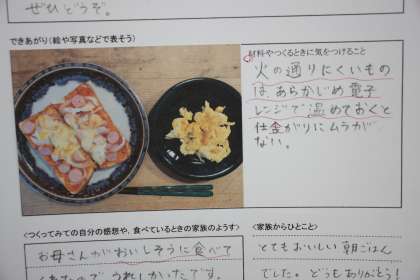 ぜひどうぞ。
できあがり(絵や写真などで表そう)
材料やつくるときに気をつけること
火の通りにくいもの
はあらかじめ電子
レンジで温めておくと
仕上がりにムラが
ない。
<つくってみての自分の感想や、食べているときの家族のようす>
お母さんがおいしそうに食べて
くれたので うれしかったです。
<家族からひとこと>
とてもおいしい朝ごはん
でした。どうもありがとう!